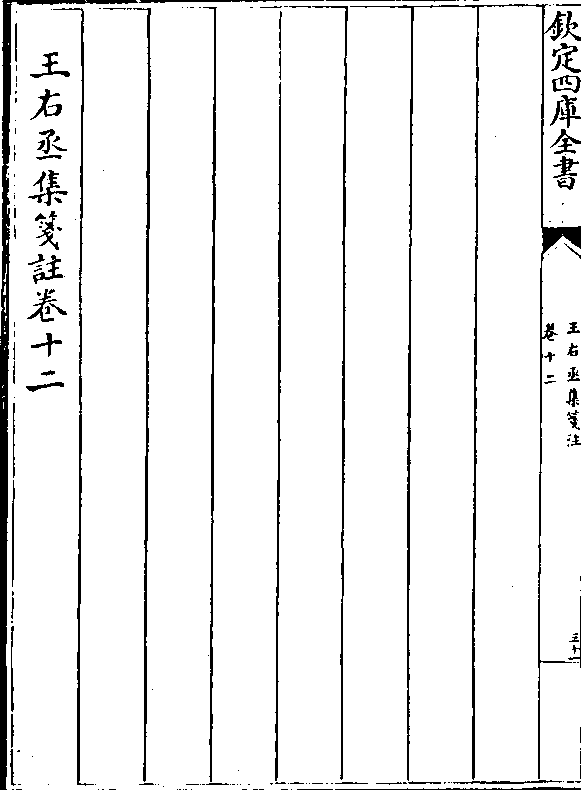 欽定四庫全書
王右丞集箋注
卷十二
三十
王右丞集箋註卷十二